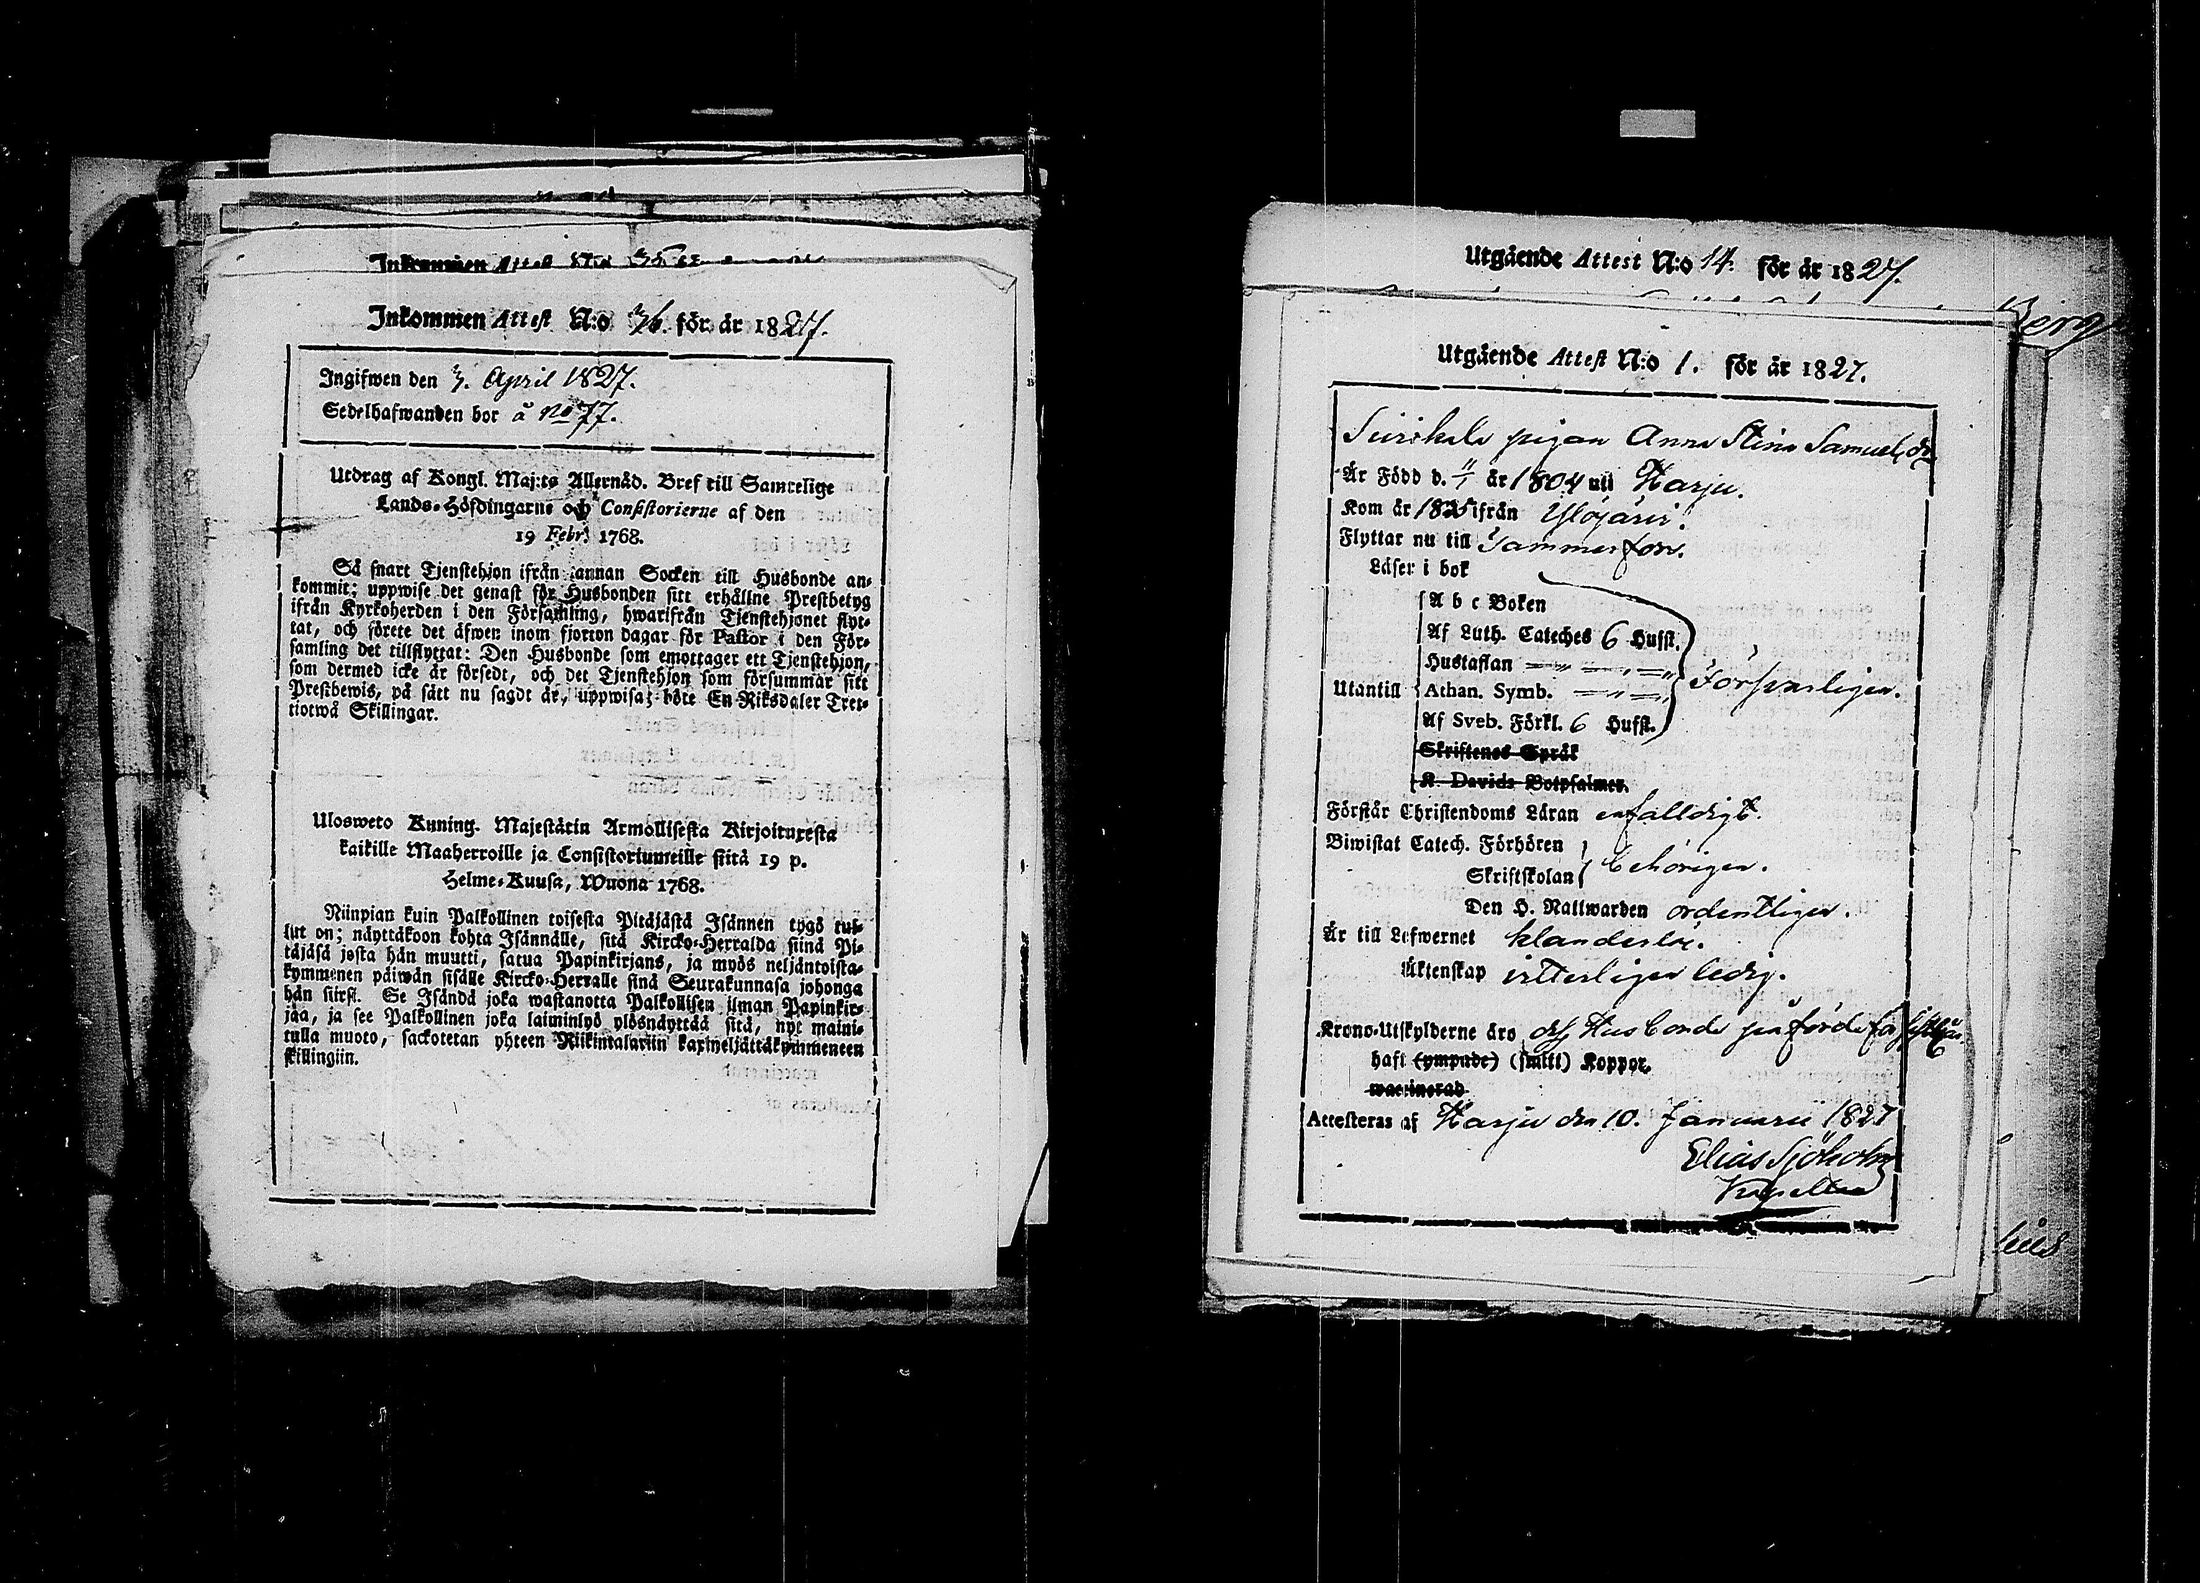 Inkommen Attest N:o 36. för år 1827.
Ingifwen den 3. April 1827.
Sedelhafwanden bor å No 77.
Utdrag af Kongl. Maj:ts Allernåd. Bref till Samtelige
Lands-Höfdingarne och Consistorierne af den
19 Febr. 1768.
Så snart Tjenstehjon ifrån annan Socken till Husbonde an-
kommit; uppwise det genast för Husbonden sitt erhållne Prestbetyg
ifrån Kyrkoherden i den Församling, hwarifrån Tjenstehjonet flyt-
tat, och förete det äfwen inom fjorton dagar för Pastor i den För-
samling det tillflyttat: Den Husbonde som emottager ett Tjenstehjon,
som dermed icke är försedt, och det Tjenstehjon som försummar sitt
Prestbewis, på sätt nu sagdt är, uppwisa; böte En Riksdaler Tret-
tiotwå Skillingar.
Ulosweto Kuning. Majestätin Armollisesta Kirjoituxesta
kaikille Maaherroille ja Consistoriumeille siitä 19 p.
Helme-Kuusa, Wuona 1768.
Niinpian kuin Palkollinen toisesta Pitäjästä Isännen tygö tul-
lut on; näyttäkoon kohta Isännälle, sitä Kircko-Herralda siinä Pi-
täjäsä josta hän muutti, satua Papinkirjans, ja myös neljäntoista-
kymmenen päiwän sisälle Kircko-Herralle sinä Seurakunnasa johonga
hän siirsi. Se Isändä joka wastanotta Palkollisen ilman Papinkir-
jaa, ja see Palkollinen joka laiminlyö ylösnäyttää sitä, nyt maini-
tulla muoto, sackotetan yhteen Riikintalariin kaxineljättäkymmeneen
skillingiin.
Utgående Attest N:o 14. för år 1827.
Berg
Utgående Attest N:o 1. för år 1827.
pigan Anna Stina Samuelsdr
Är Född d. 11/1 år 1804 uti Harju.
Kom år 1825 ifrån Ylöjärvi.
Flyttar nu till Tammerfors.
Läser i bok
A b c Boken
Af Luth. Cateches 6 Hufst.
Hustaflan
Försvarligen.
Utantill Athan. Symb.
Af Sveb. Förkl. 6 Hufst.
Skriftenes Språk
K. Davids Botpsalmer.
Förstår Christendoms Läran enfalldigt.
Biwistat Catech. Förhören
Skriftskolan behörigen.
Den H. Nattwarden ordentligen.
Är till Lefwernet klanderlös.
Äktenskap ledig.
Krono-Utskylderne äro Husbonde påförde för
haft (ympade) (smitt) Koppor.
waccinerad
Attesteras af Harju den 10. Januarii 1827
Elias Sjöholm
Kapellan